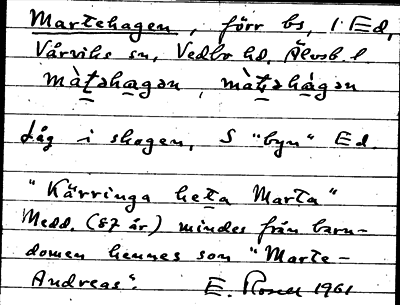 Martehagen, förr bs, i Ed,
Vårviks sn, Vedbo hd, Älvsb. l
màt̠əha̠gən, màt̠əhàgən
Låg i skogen, S "byn" Ed
"Kärringa heta Marta"
Medd. (87 år) mindes från barn-
domen hennes son "Marte-
Andreas". E. Rosell 1961